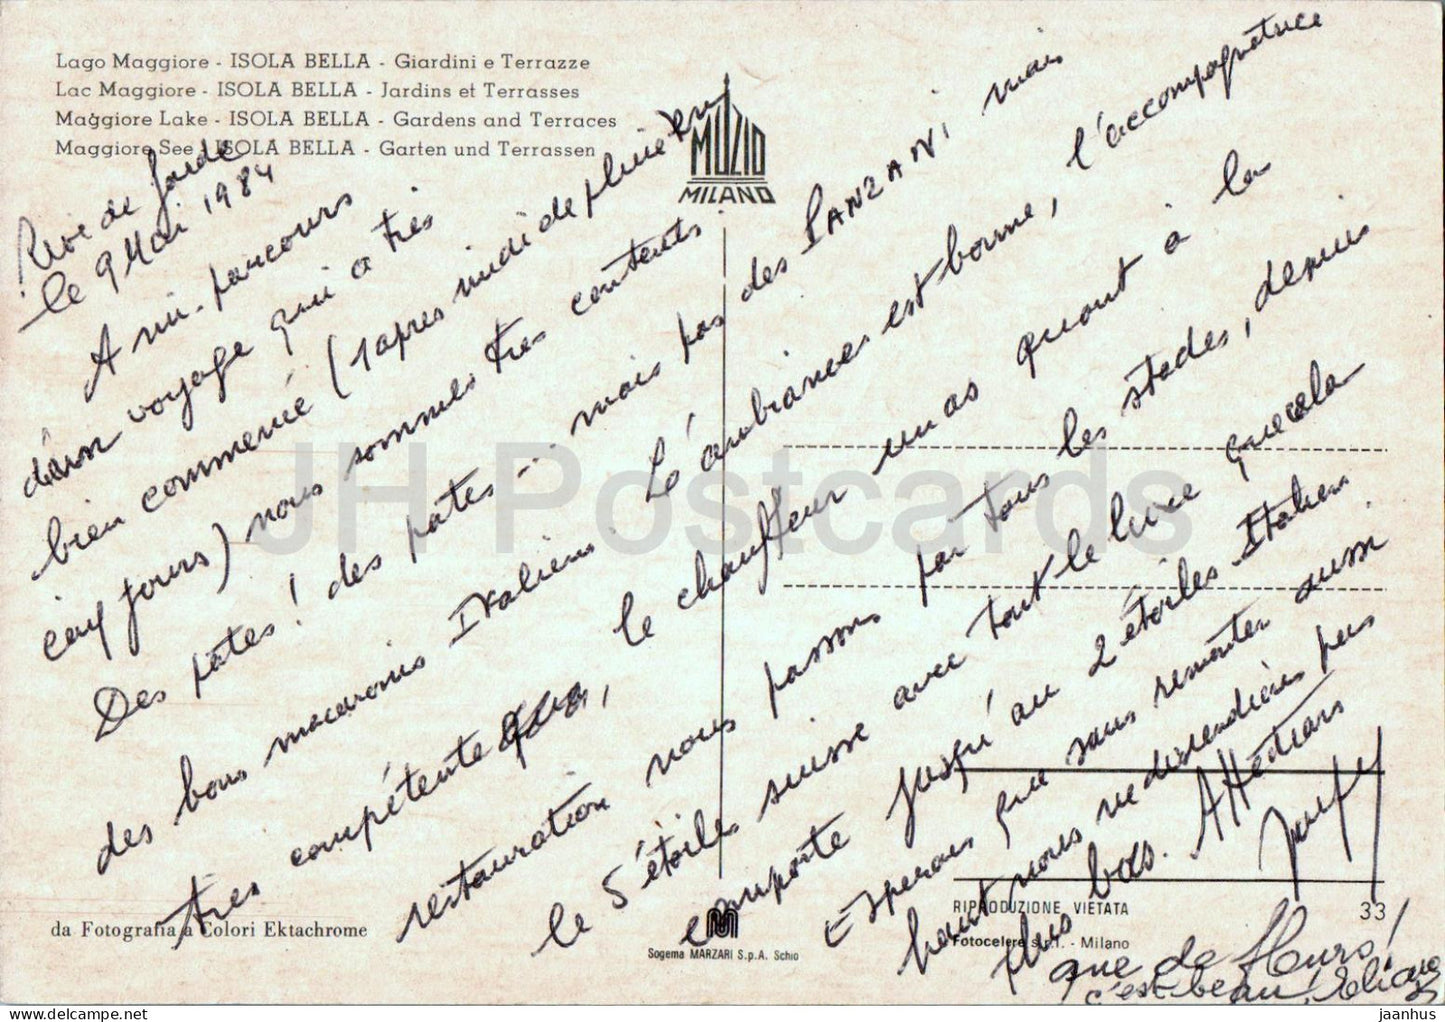 Lago Maggiore - ISOLA BELLA - Giardini e Terrazze
Lac Maggiore - ISOLA BELLA - Jardins et Terrasses
Maggiore Lake - ISOLA BELLA - Gardens and Terraces
Maggiore See - ISOLA BELLA - Garten und Terrassen
MUZIO
MILANO
Riva de Garde
le 9 Mai 1984
A mi-parcours
d'un voyage qui a très
bien commencé (1 après midi de pluie en
cinq jours) nous sommes très contents
Des pâtes! des pates... mais pas des PANZANI mais
des bons macaronis Italiens. L'ambiance est bonne, l'accompagnatrice
très compétente, le chauffeur un as quant à la
restauration nous passons par tous les stades, depuis
le 5 étoiles suisse avec tout le luxe que cela
comporte jusqu'au 2 étoiles Italien.
Esperons que sans remonter aussi
haut nous redescendions pas
plus bas. Affection
que de fleurs!
c'est beau!
da Fotografia a Colori Ektachrome
Sogema MARZARI S.p.A. Schio
RIPRODUZIONE VIETATA
33
Fotocelere s.r.l. - Milano
JH Postcards
jaanhus